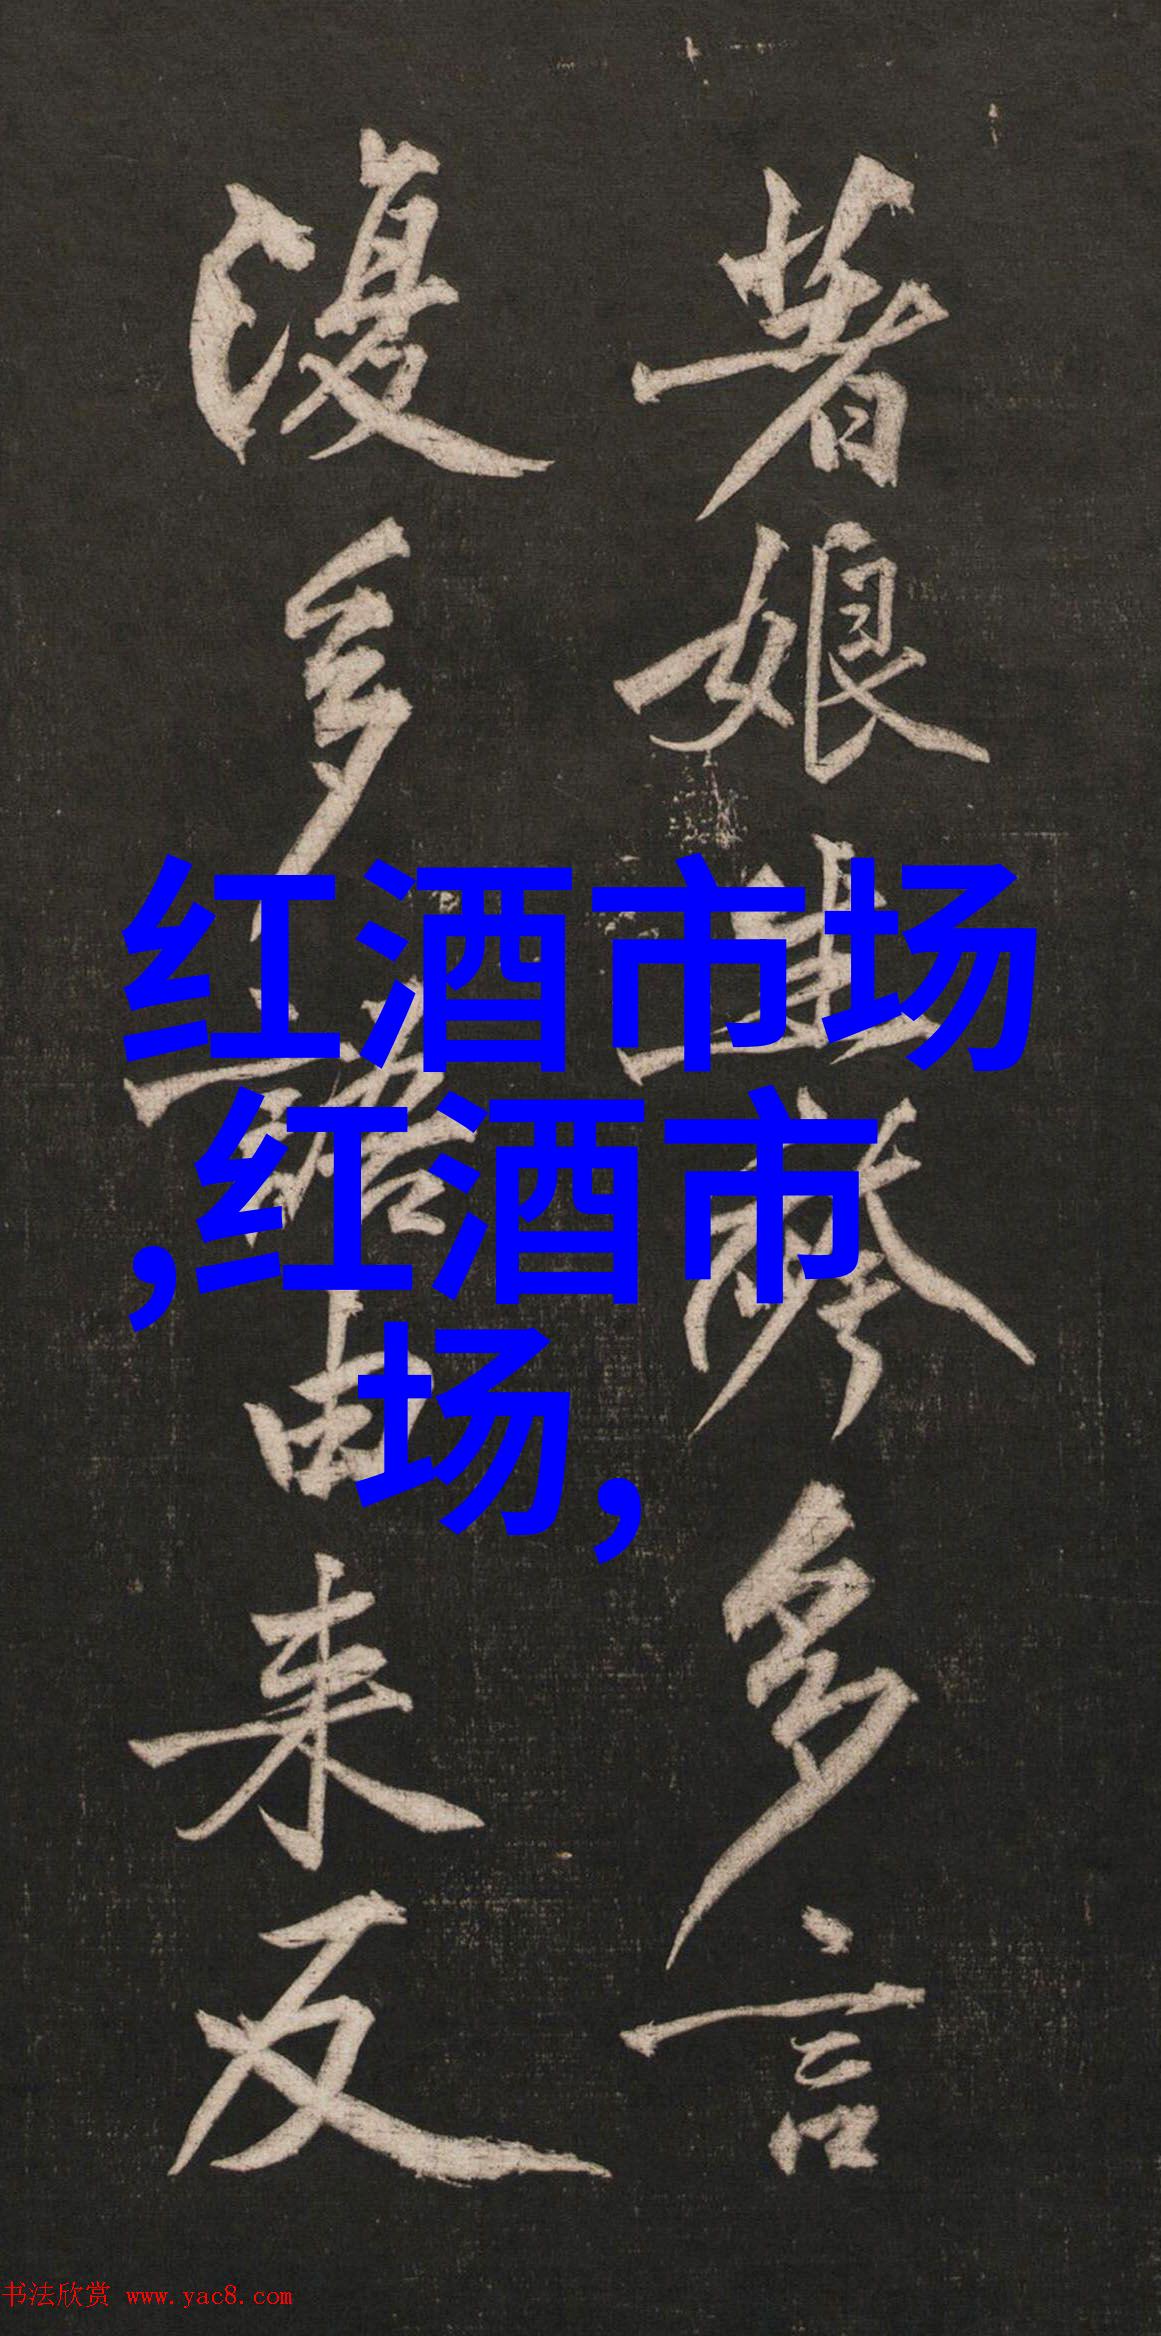 著娘
多言
復多語由来反
红酒市场
,红酒市
场,
书法欣赏 www.yac8.com